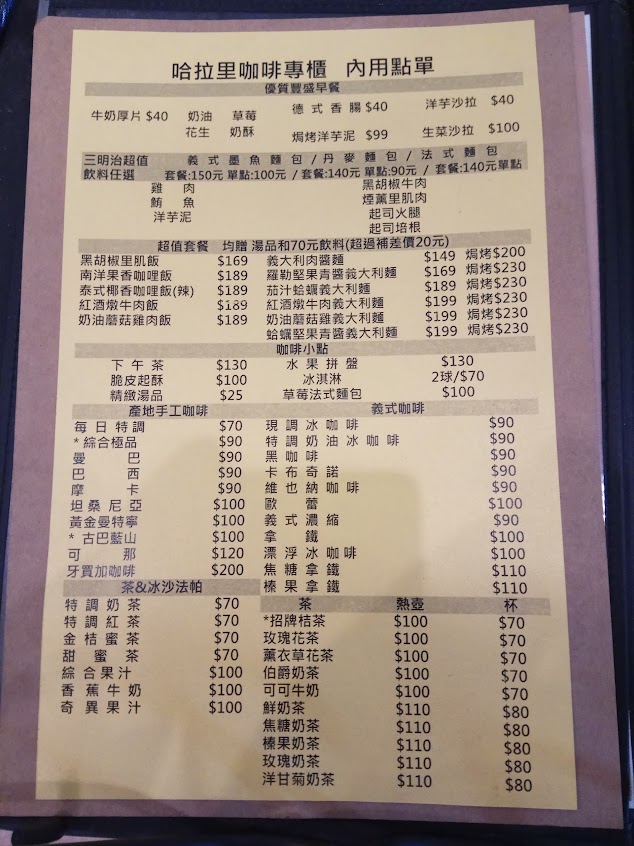 哈拉里咖啡專櫃 內用點單
優質豐盛早餐
牛奶厚片$40 奶油 草莓 德式香腸$40 洋芋沙拉 $40
花生 奶酥 焗烤洋芋泥 $99 生菜沙拉 $100
三明治超值 義式墨魚麵包/丹麥麵包/法式麵包
飲料任選 套餐:150元 單點:100元 /套餐:140元 單點:90元 /套餐:140元單點
雞 肉 黑胡椒牛肉
鮪 魚 煙薰里肌肉
洋芋泥 起司火腿
起司培根
超值套餐 均贈 湯品和70元飲料(超過補差價20元)
黑胡椒里肌飯 $169 義大利肉醬麵 $149 焗烤$200
南洋果香咖哩飯 $189 羅勒堅果青醬義大利麵 $169 焗烤$230
泰式椰香咖哩飯(辣) $189 茄汁蛤蠣義大利麵 $189 焗烤$230
紅酒燉牛肉飯 $189 紅酒燉牛肉義大利麵 $199 焗烤$230
奶油蘑菇雞肉飯 $189 奶油蘑菇雞義大利麵 $199 焗烤$230
蛤蠣堅果青醬義大利麵 $199 焗烤$230
咖啡小點
下午茶 $130 水果拼盤 $130
脆皮起酥 $100 冰淇淋 2球/$70
精緻湯品 $25 草莓法式麵包 $100
產地手工咖啡 義式咖啡
每日特調 $70 現調冰咖啡 $90
*綜合極品 $90 特調奶油冰咖啡 $90
曼 巴 $90 黑咖啡 $90
巴 西 $90 卡布奇諾 $90
摩 卡 $90 維也納咖啡 $90
坦桑尼亞 $100 歐 蕾 $100
黃金曼特寧 $100 義式濃縮 $90
*古巴藍山 $100 拿 鐵 $100
可 那 $120 漂浮冰咖啡 $100
牙買加咖啡 $200 焦糖拿鐵 $110
榛果拿鐵 $110
茶&冰沙法帕 茶 熱壺 杯
特調奶茶 $70 *招牌桔茶 $100 $70
特調紅茶 $70 玫瑰花茶 $100 $70
金桔蜜茶 $70 薰衣草花茶 $100 $70
甜蜜茶 $70 伯爵奶茶 $100 $70
綜合果汁 $100 可可牛奶 $100 $70
香蕉牛奶 $100 鮮奶茶 $110 $80
奇異果汁 $100 焦糖奶茶 $110 $80
榛果奶茶 $110 $80
玫瑰奶茶 $110 $80
洋甘菊奶茶 $110 $80